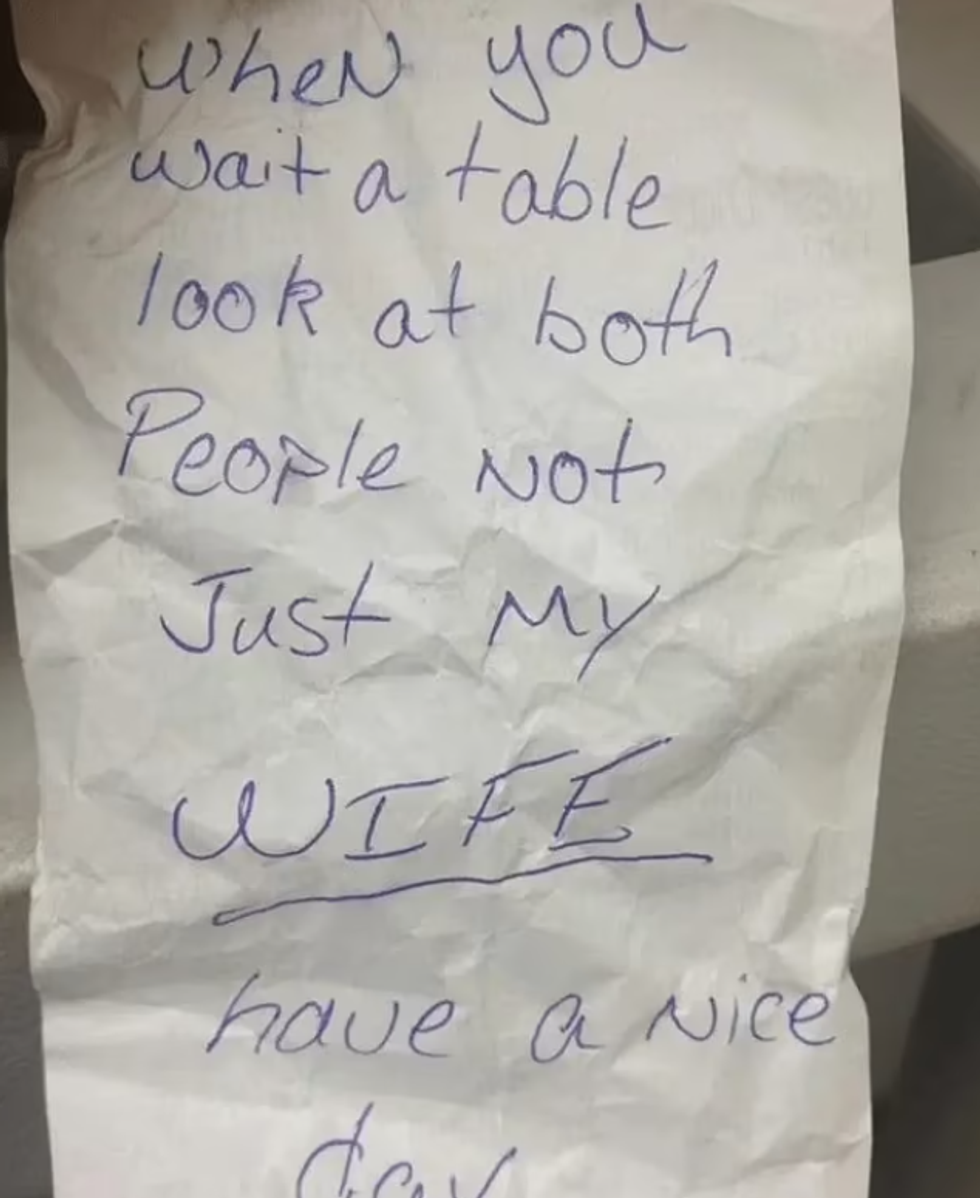 when you
wait a table
look at both
People Not
Just My
WIFE
have a Nice
day